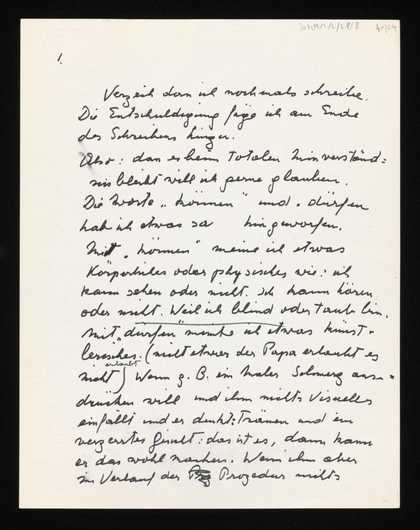 1.
Verzeih dass ich nochmals schreibe.
Die Entschuldigung füge ich am Ende
des Schreibens hinzu.
Also: dass es beim totalen
bleibt will ich gerne glauben.
Die Worte „können" und „dürfen
hab ich etwas so hingeworfen.
Mit „können" meine ich etwas
Körperliches oder physisches wie: ich
kann sehen oder nicht. Ich kann hören
oder nicht. Weil ich blind oder taub bin.
Mit „dürfen" meinte ich etwas künst-
lerisches. (nicht etwa der Papa erlaubt es
erlaubt
nicht) Wenn z. B. ein Maler Schmerz aus-
drücken will und ihm nichts Visuelles
einfällt und er denkt: Tränen und ein
verzerrtes Gesicht: das ist es, dann kann
er das wohl machen. Wenn ihm aber
im Verlauf der Prozedur nichts